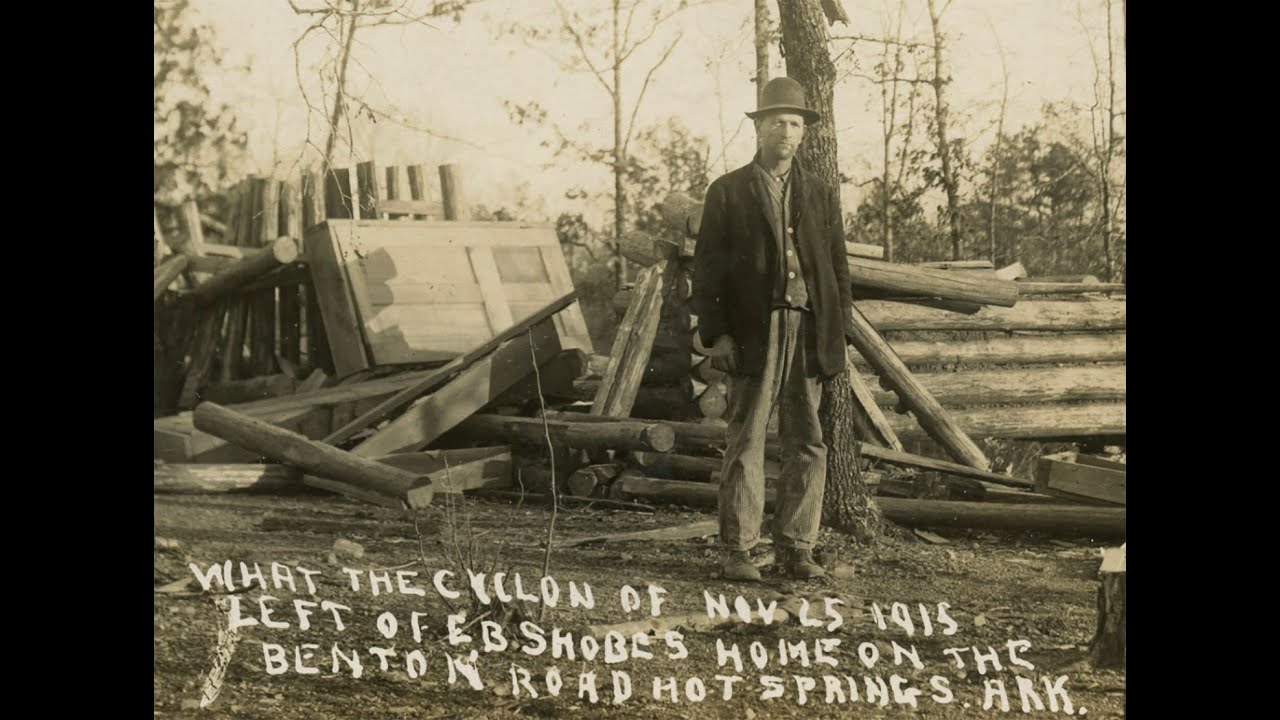 WHAT THE CYCLON OF NOV 25 1915
LEFT OF E.B. SHOBES HOME ON THE
BENTON ROAD HOT SPRINGS. ARK.